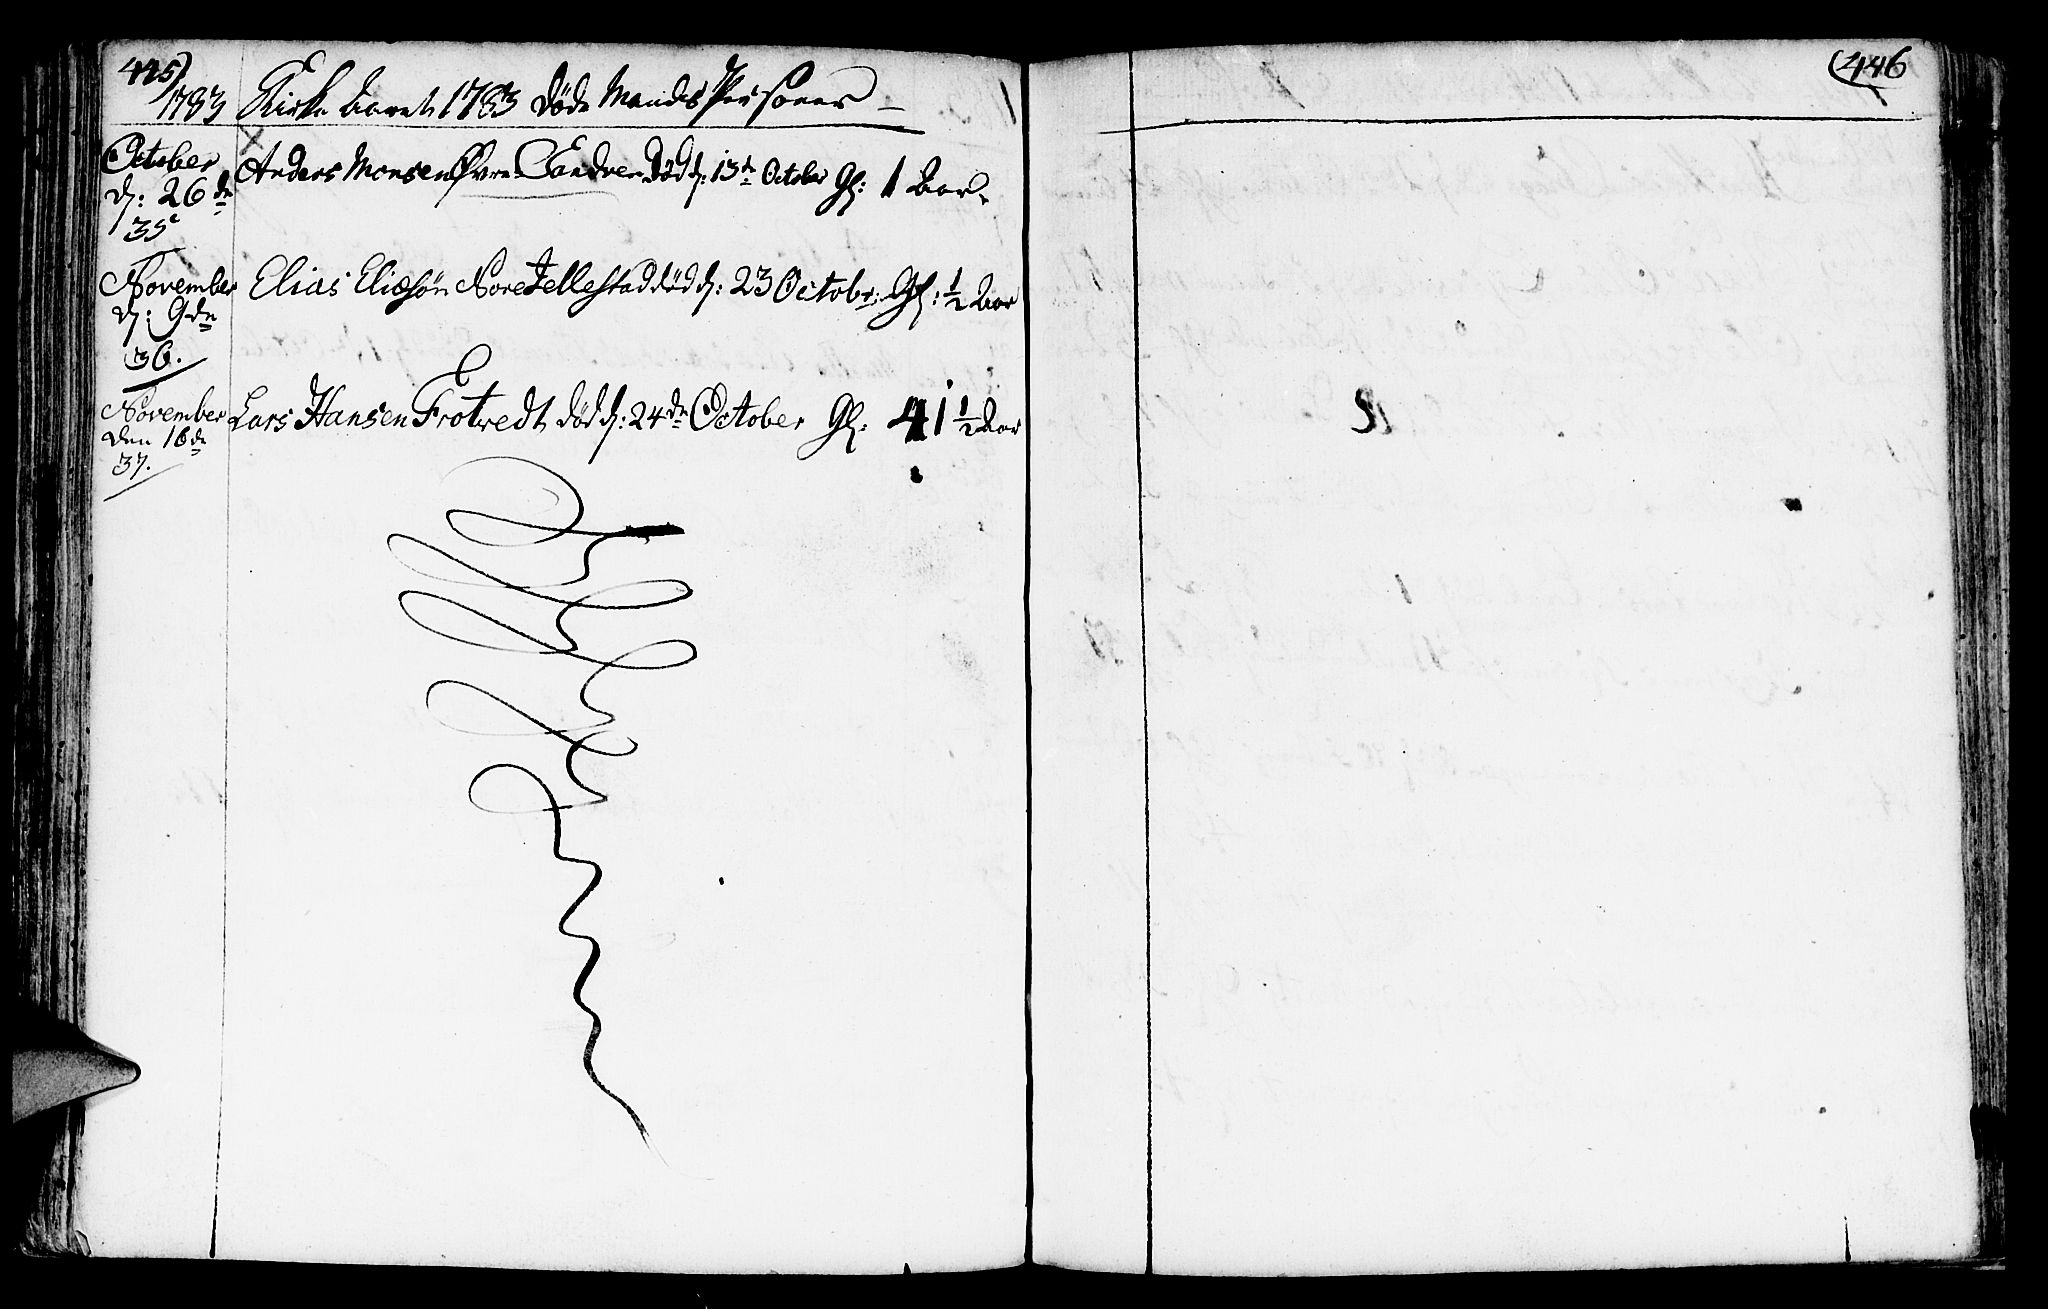 445)
1783 Kirke Aaret 1783 döde Mands Personer
October d: 26de 35
Anders Monsen Øvre Sandven död d: 13de October Gl: 1 Aar
November d: 9de 36.
Elias Eliæsön Nore Tellestad död d: 23 Octobr: Gl: ½ Aar
November den 16de 37.
Lars Hansen Frotvedt död d: 24de October Gl: 41 ½ Aar
(446